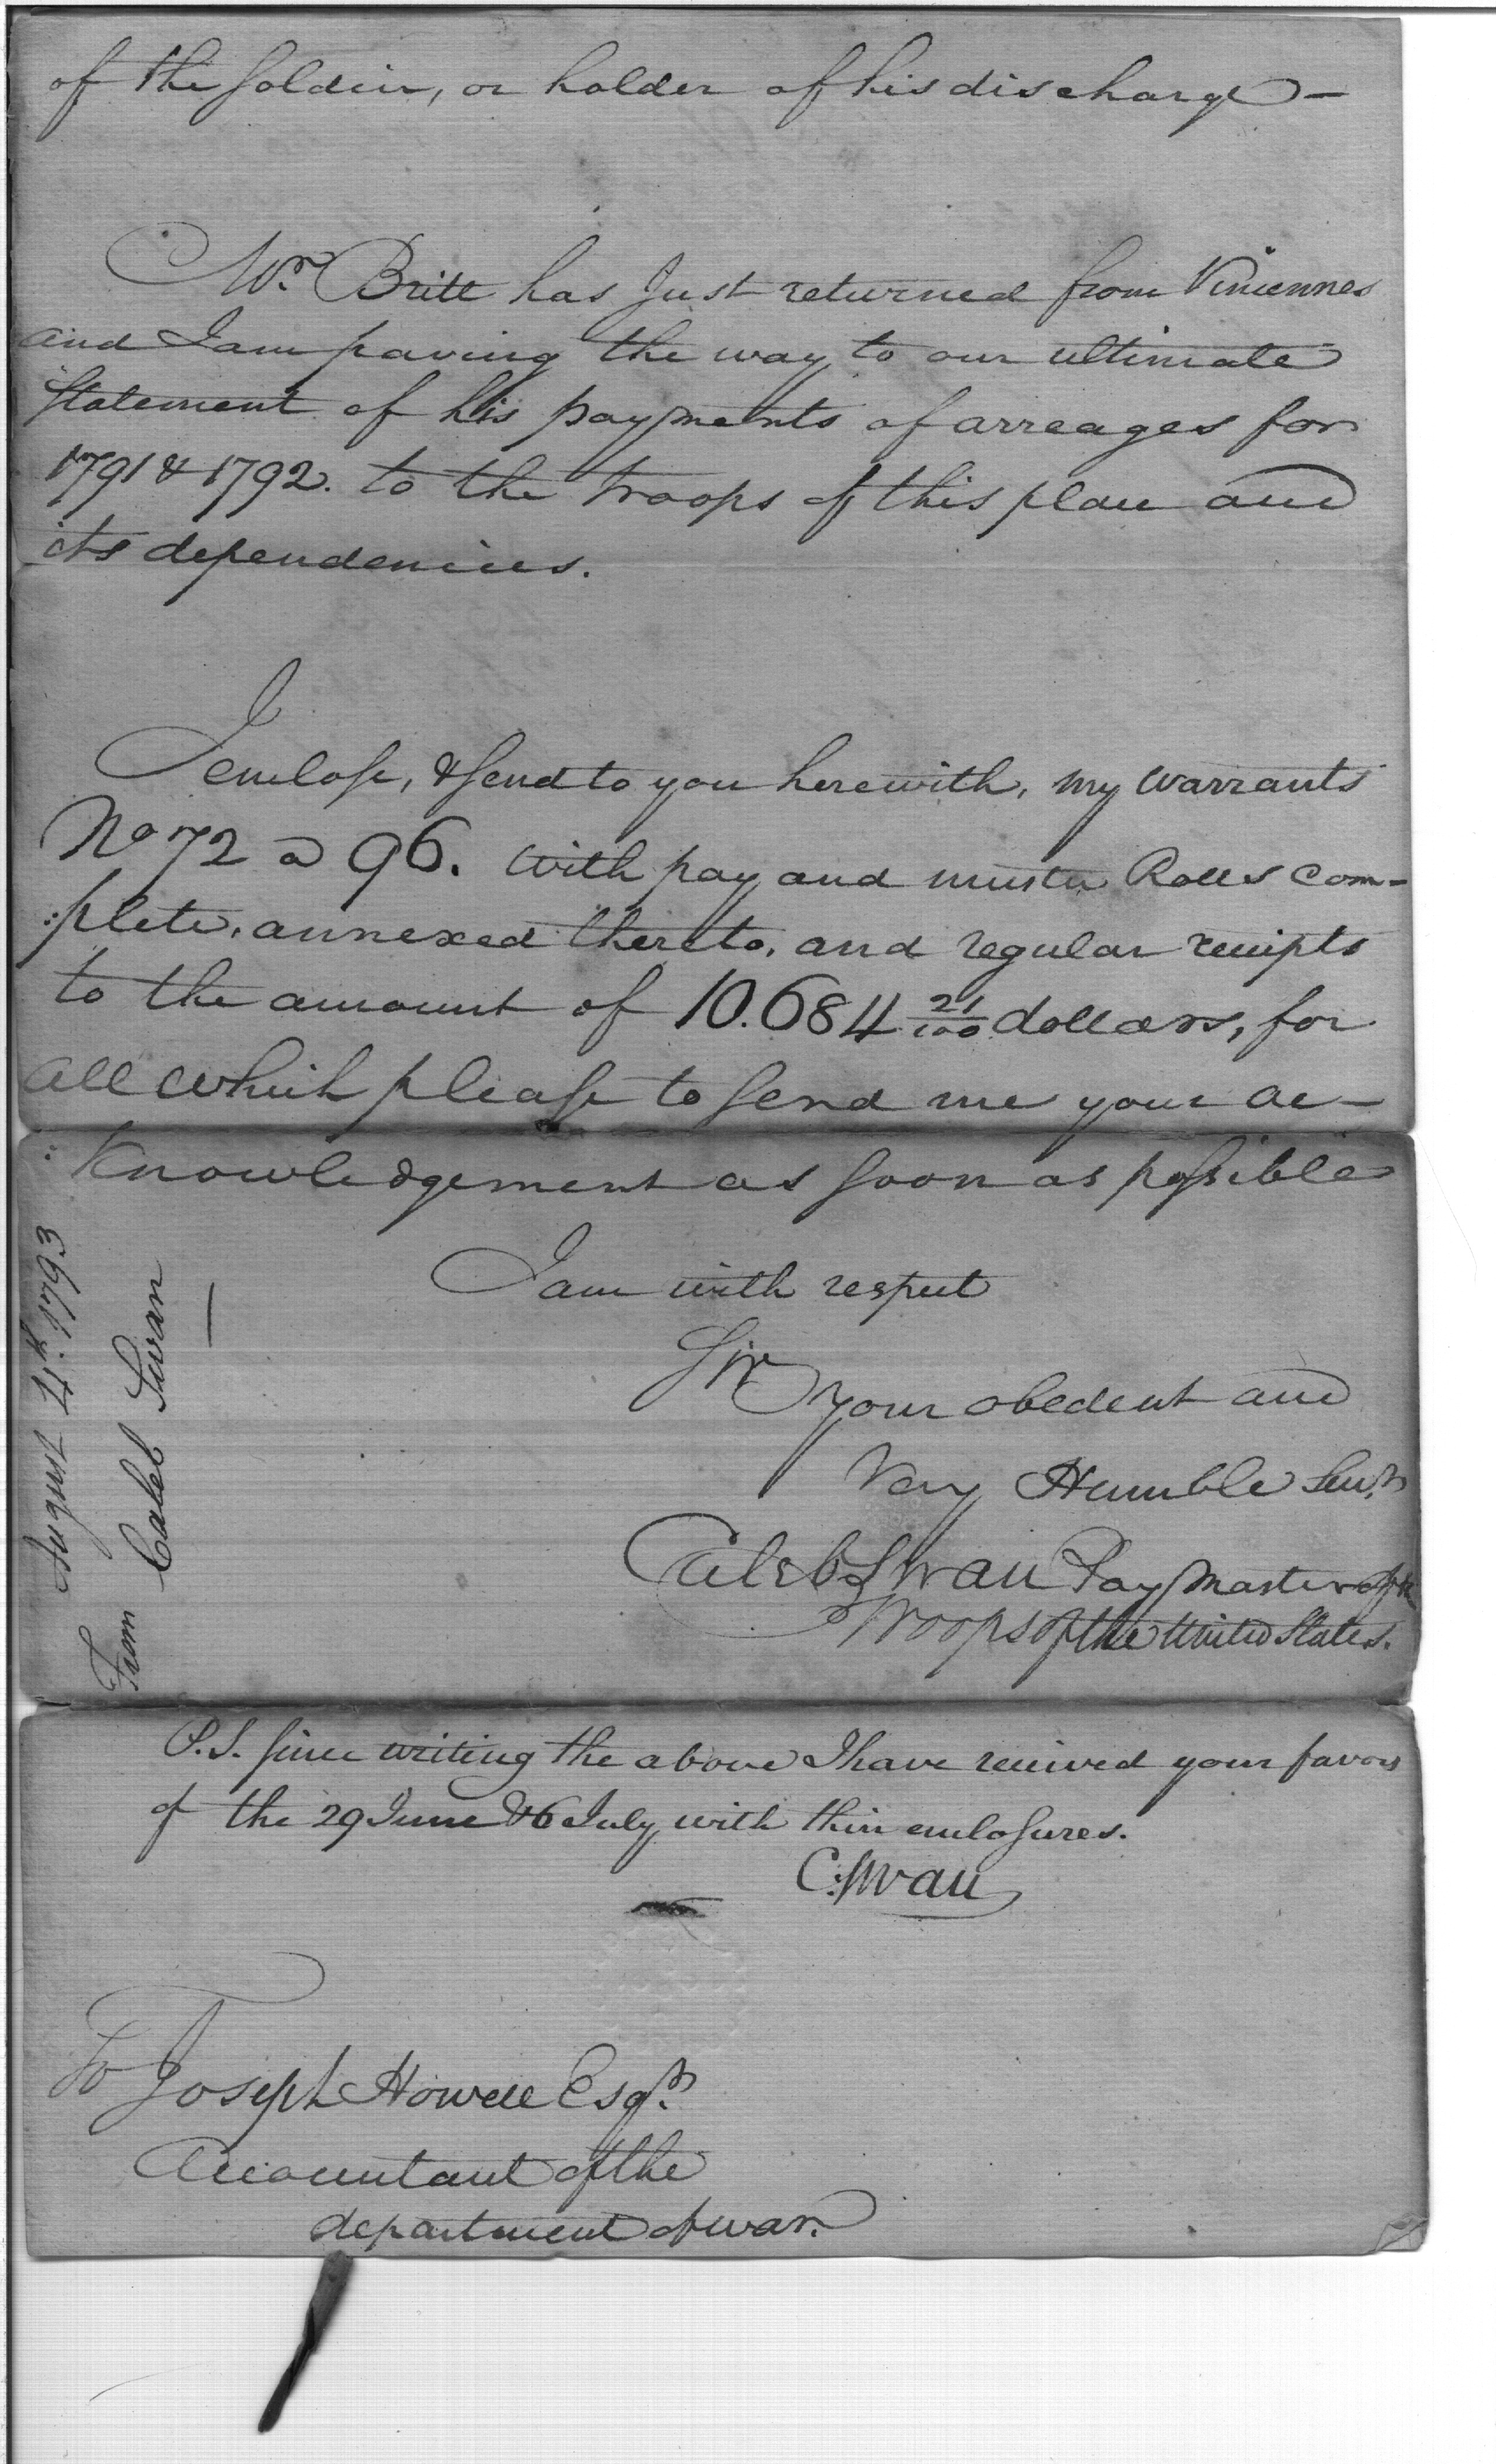 of the soldier, or holder of his discharge —
Mr. Britt has Just returned from Vincennes
and I am paving the way to our ultimate
statement of his payments of arreages for
1791 & 1792. to the troops of this place and
its dependencies.
I enclose, & send to you herewith, my warrants
No 72 a 96. with pay and muster Rolls com-
:plete, annexed thereto, and regular receipts
to the amount of 10.684 21/100 dollars, for
all which please to send me your ac-
:knowledgement as soon as possible
I am with respect
Sir
your obedent and
Very Humble Servt.
Caleb Swan Pay Master of the
Troops of the United States.
August 4th. 1793
From Caleb Swan
P.S. since writing the above I have received your favors
of the 29 June & 6 July with their enclosures.
C: Swan
To Joseph Howell Esqr.
Accountant of the
department of war.